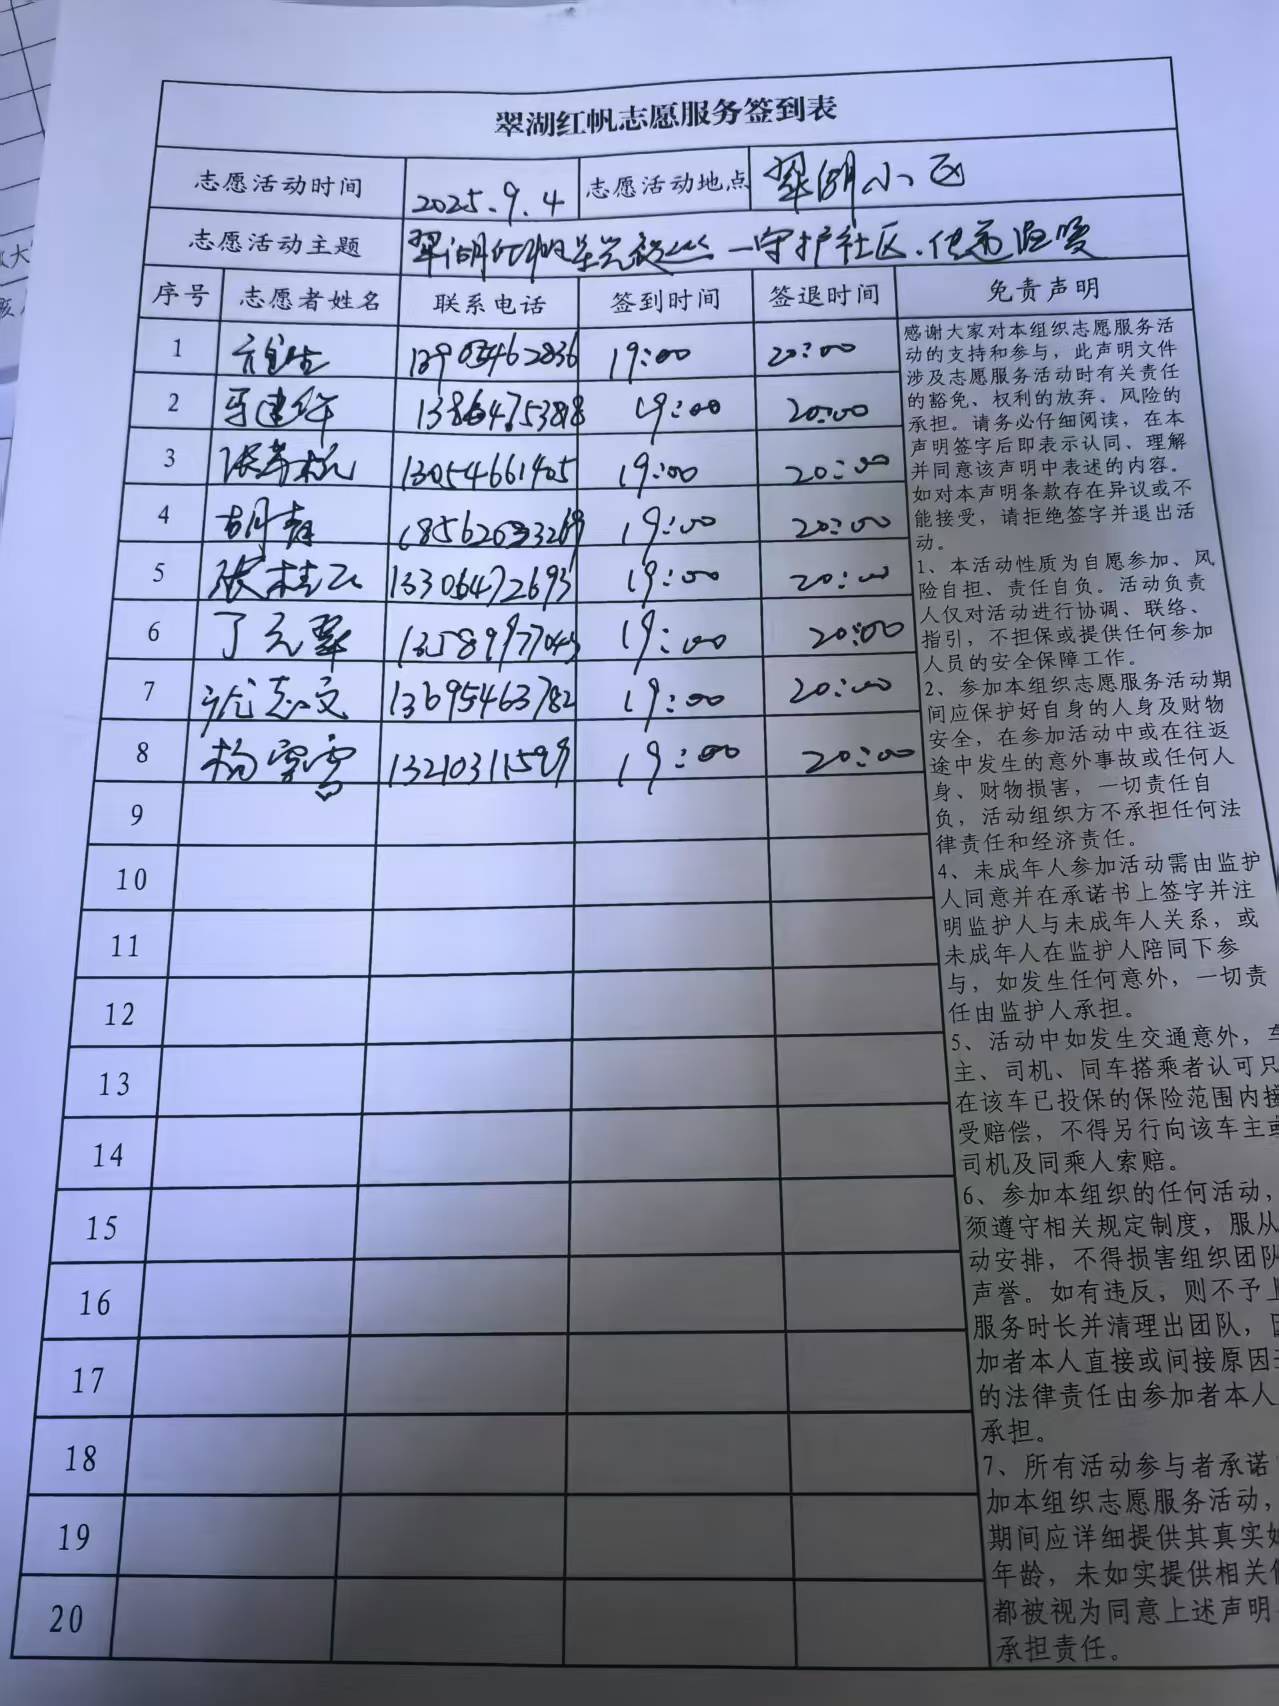 翠湖红帆志愿服务签到表
志愿活动时间 2025.9.4 志愿活动地点 翠湖小区
志愿活动主题 翠湖红帆 守护社区.传递温暖
序号 志愿者姓名 联系电话 签到时间 签退时间 免责声明
1 19:00 20:00
2 13864753818 19:00 20:00
3 13054661405 19:00 20:00
4 胡青 18562033269 19:00 20:00
5 张桂云 13306472693 19:00 20:00
6 丁元翠 13589977043 19:00 20:00
7 志文 13695463782 19:00 20:00
8 杨雪 19:00 20:00
9
10
11
12
13
14
15
16
17
18
19
20
感谢大家对本组织志愿服务活
动的支持和参与，此声明文件
涉及志愿服务活动时有关责任
的豁免、权利的放弃、风险的
承担。请务必仔细阅读，在本
声明签字后即表示认同、理解
并同意该声明中表述的内容。
如对本声明条款存在异议或不
能接受，请拒绝签字并退出活
动。
1、本活动性质为自愿参加、风
险自担、责任自负。活动负责
人仅对活动进行协调、联络、
指引，不担保或提供任何参加
人员的安全保障工作。
2、参加本组织志愿服务活动期
间应保护好自身的人身及财物
安全，在参加活动中或在往返
途中发生的意外事故或任何人
身、财物损害，一切责任自
负，活动组织方不承担任何法
律责任和经济责任。
4、未成年人参加活动需由监护
人同意并在承诺书上签字并注
明监护人与未成年人关系，或
未成年人在监护人陪同下参
与，如发生任何意外，一切责
任由监护人承担。
5、活动中如发生交通意外，车
主、司机、同车搭乘者认可只
在该车已投保的保险范围内接
受赔偿，不得另行向该车主或
司机及同乘人索赔。
6、参加本组织的任何活动，
须遵守相关规定制度，服从
动安排，不得损害组织团队
声誉。如有违反，则不予上
服务时长并清理出团队，因
加者本人直接或间接原因
的法律责任由参加者本人
承担。
7、所有活动参与者承诺
加本组织志愿服务活动，
期间应详细提供其真实姓
年龄，未如实提供相关信
都被视为同意上述声明
承担责任。